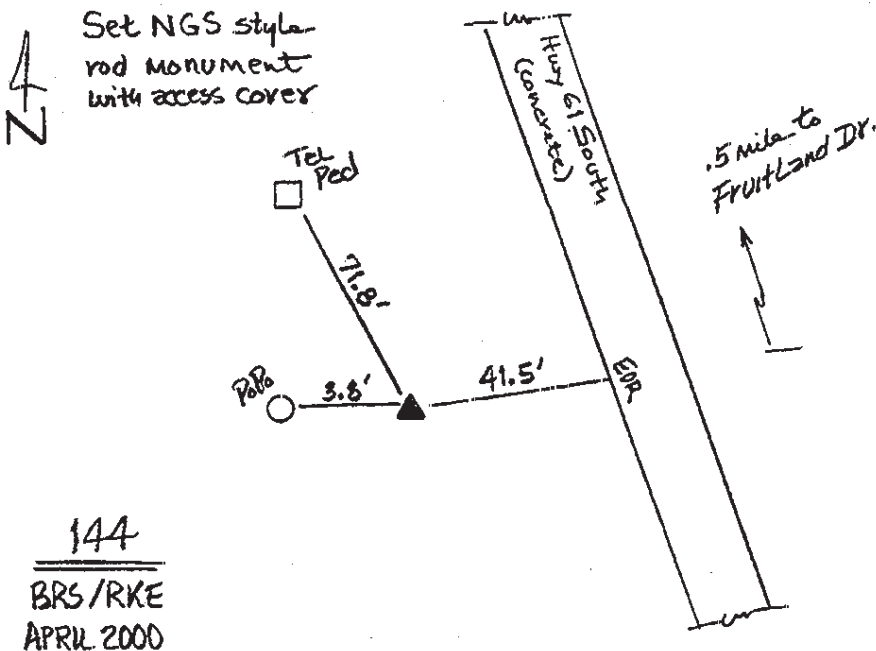 Set NGS style
rod monument
with access cover
N
Tel
Ped
71.8'
PoPo
3.8'
41.5'
EOR
Hwy 61 South
(concrete)
.5 mile to
Fruitland Dr.
144
BRS/RKE
APRIL 2000